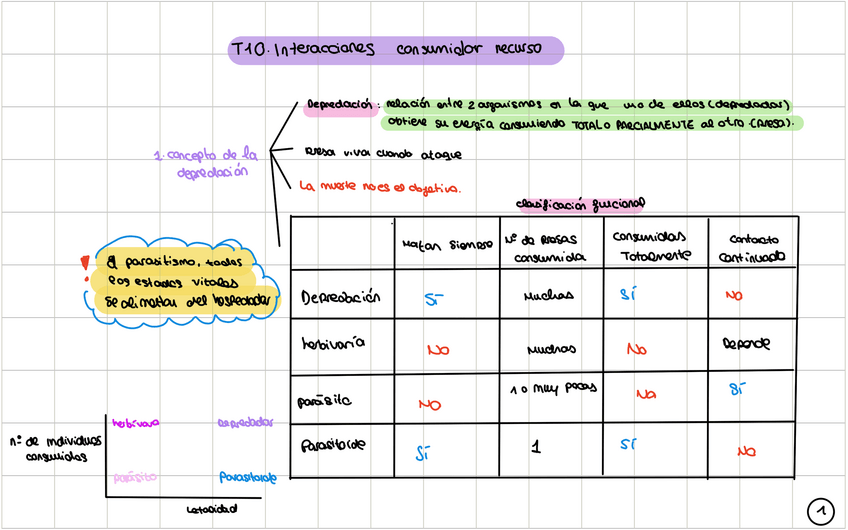 T10. Interacciones consumidor recurso
1. concepto de la
depredación
Depredación: relación entre 2 organismos en la que uno de ellos (depredador)
obtiene su energía consumiendo TOTAL O PARCIALMENTE al otro (presa).
Presa viva cuando ataque
La muerte no es el objetivo.
clasificación funcional
! El parasitismo, todos
los estados vitales
se alimentan del hospedador
Matan siempre
Nº de presas
consumida
Consumidas
Totalmente
Contacto
Continuado
Depredación Sí Muchas Sí No
herbivoría No Muchas No Depende
parásito No 1 o muy pocas No Sí
Parasitoide Sí 1 Sí No
nº de individuos
consumidos
herbívoro Depredador
parásito Parasitoide
Letalidad
1